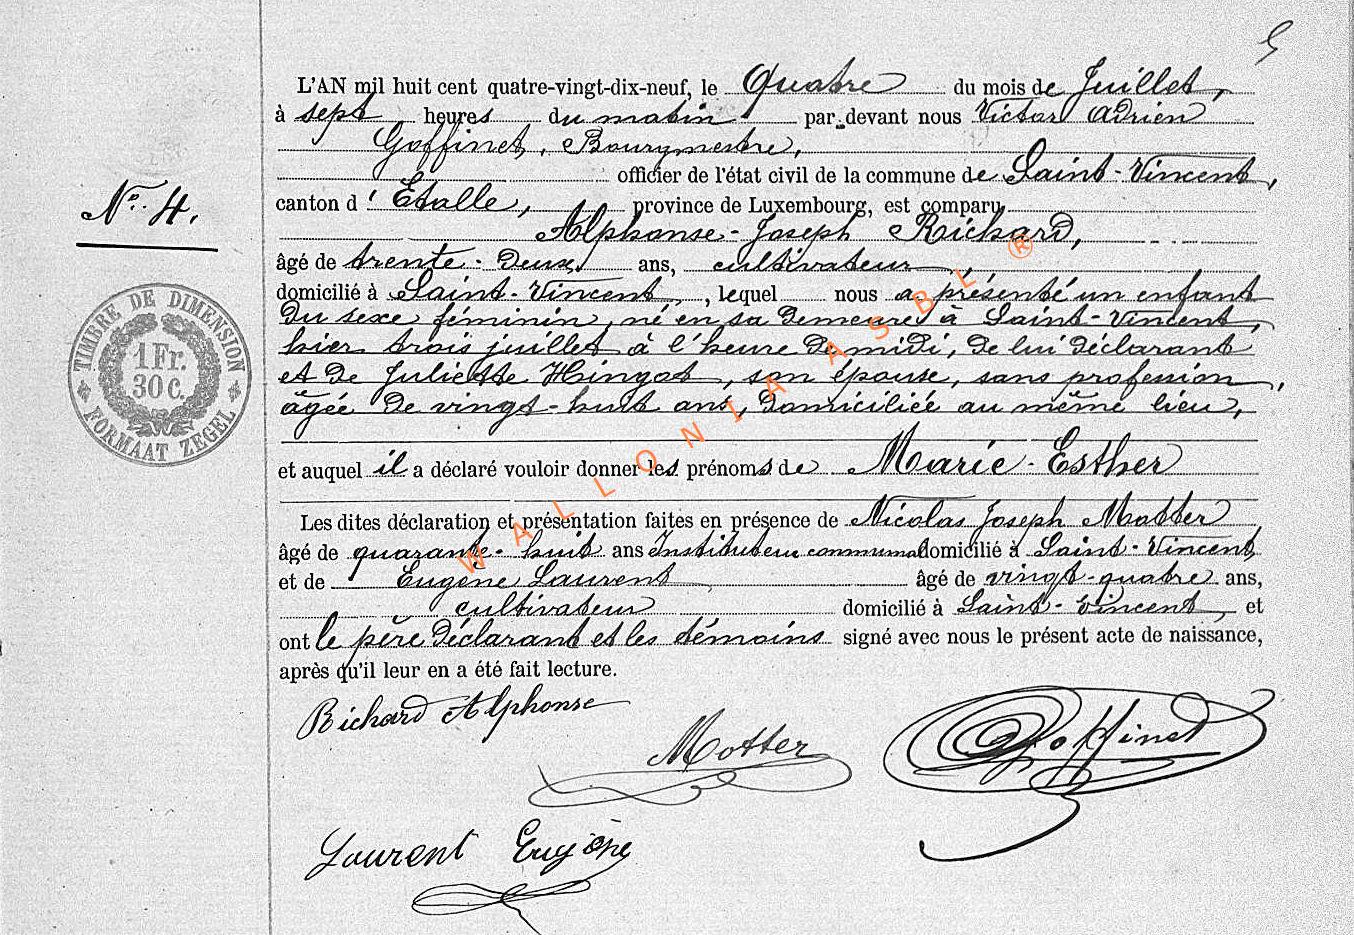 5
L'AN mil huit cent quatre-vingt-dix-neuf, le Quatre du mois de Juillet,
à sept heures du matin par-devant nous Victor Adrien
Goffinet, Bourgmestre,
officier de l'état civil de la commune de Saint-Vincent,
canton d'Etalle, province de Luxembourg, est comparu
Alphonse-Joseph Richard,
âgé de trente-deux ans, cultivateur,
domicilié à Saint-Vincent, lequel nous a présenté un enfant
du sexe féminin, né en sa demeure à Saint-Vincent,
hier trois juillet à l'heure de midi, de lui déclarant
et de Juliette Hingot, son épouse, sans profession,
âgée de vingt-huit ans, domiciliée au même lieu,
et auquel il a déclaré vouloir donner les prénoms de Marie-Esther
Les dites déclaration et présentation faites en présence de Nicolas Joseph Motter
âgé de quarante-huit ans Instituteur communal domicilié à Saint-Vincent,
et de Eugène Laurent, âgé de vingt-quatre ans,
cultivateur domicilié à Saint-Vincent, et
ont le père déclarant et les témoins signé avec nous le présent acte de naissance,
après qu'il leur en a été fait lecture.
Richard Alphonse
Motter
Goffinet
Laurent Eugène
No. 4.
TIMBRE DE DIMENSION
1 Fr.
30 C.
FORMAAT ZEGEL
WALLONIA ASBL ®